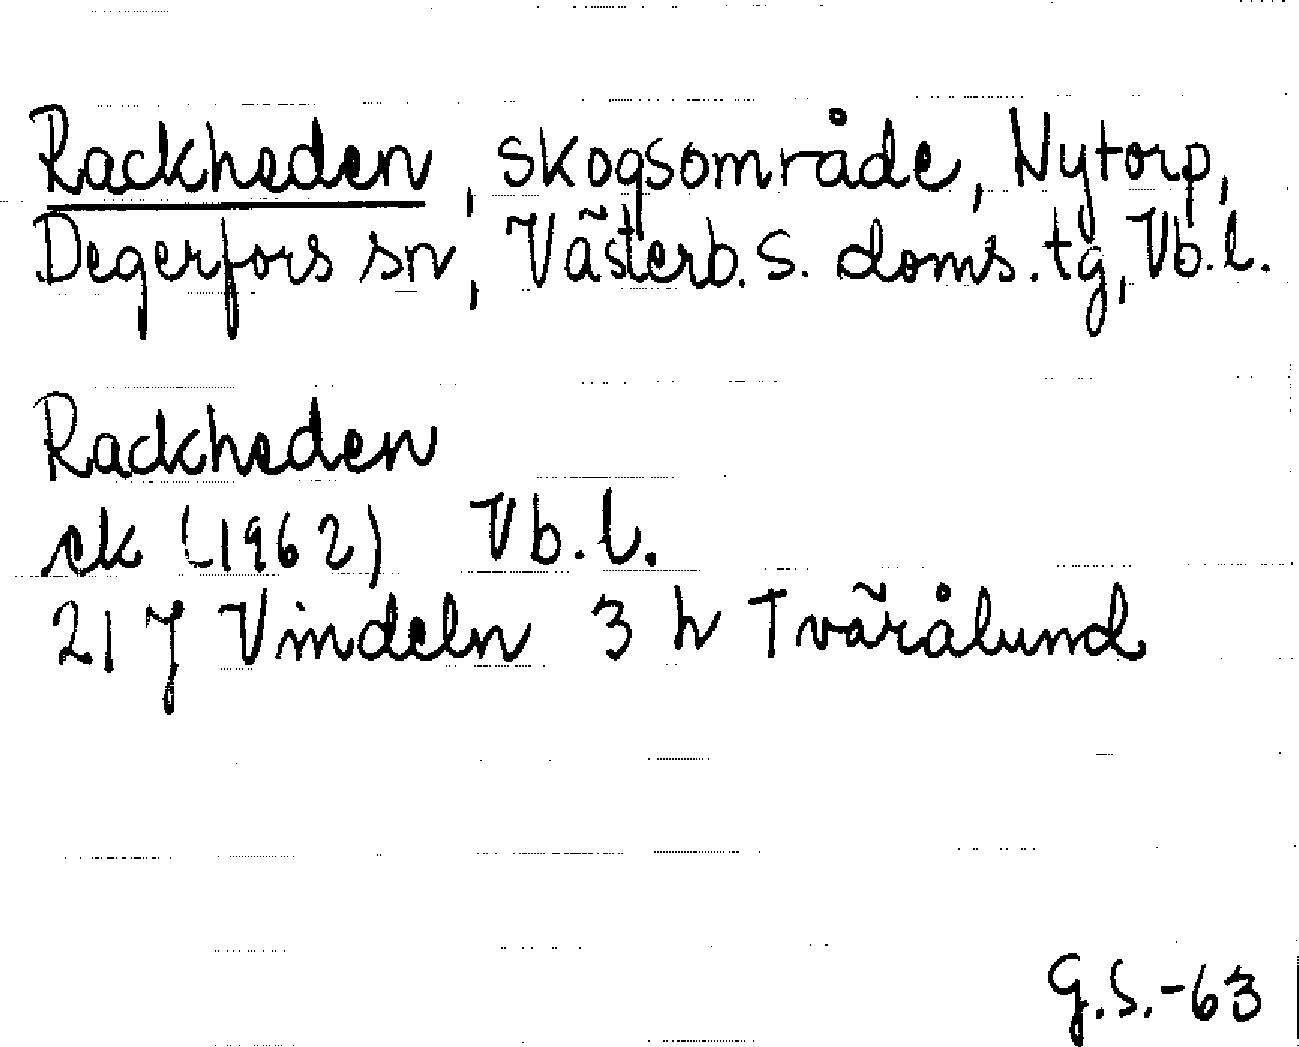 Rackheden, skogsområde, Nytorp,
Degerfors sn, Västerb. S. doms. tg, Vb. l.
Rackheden
ek (1962) Vb. l.
21 J Vindeln 3 h Tvärålund
G.S.-63